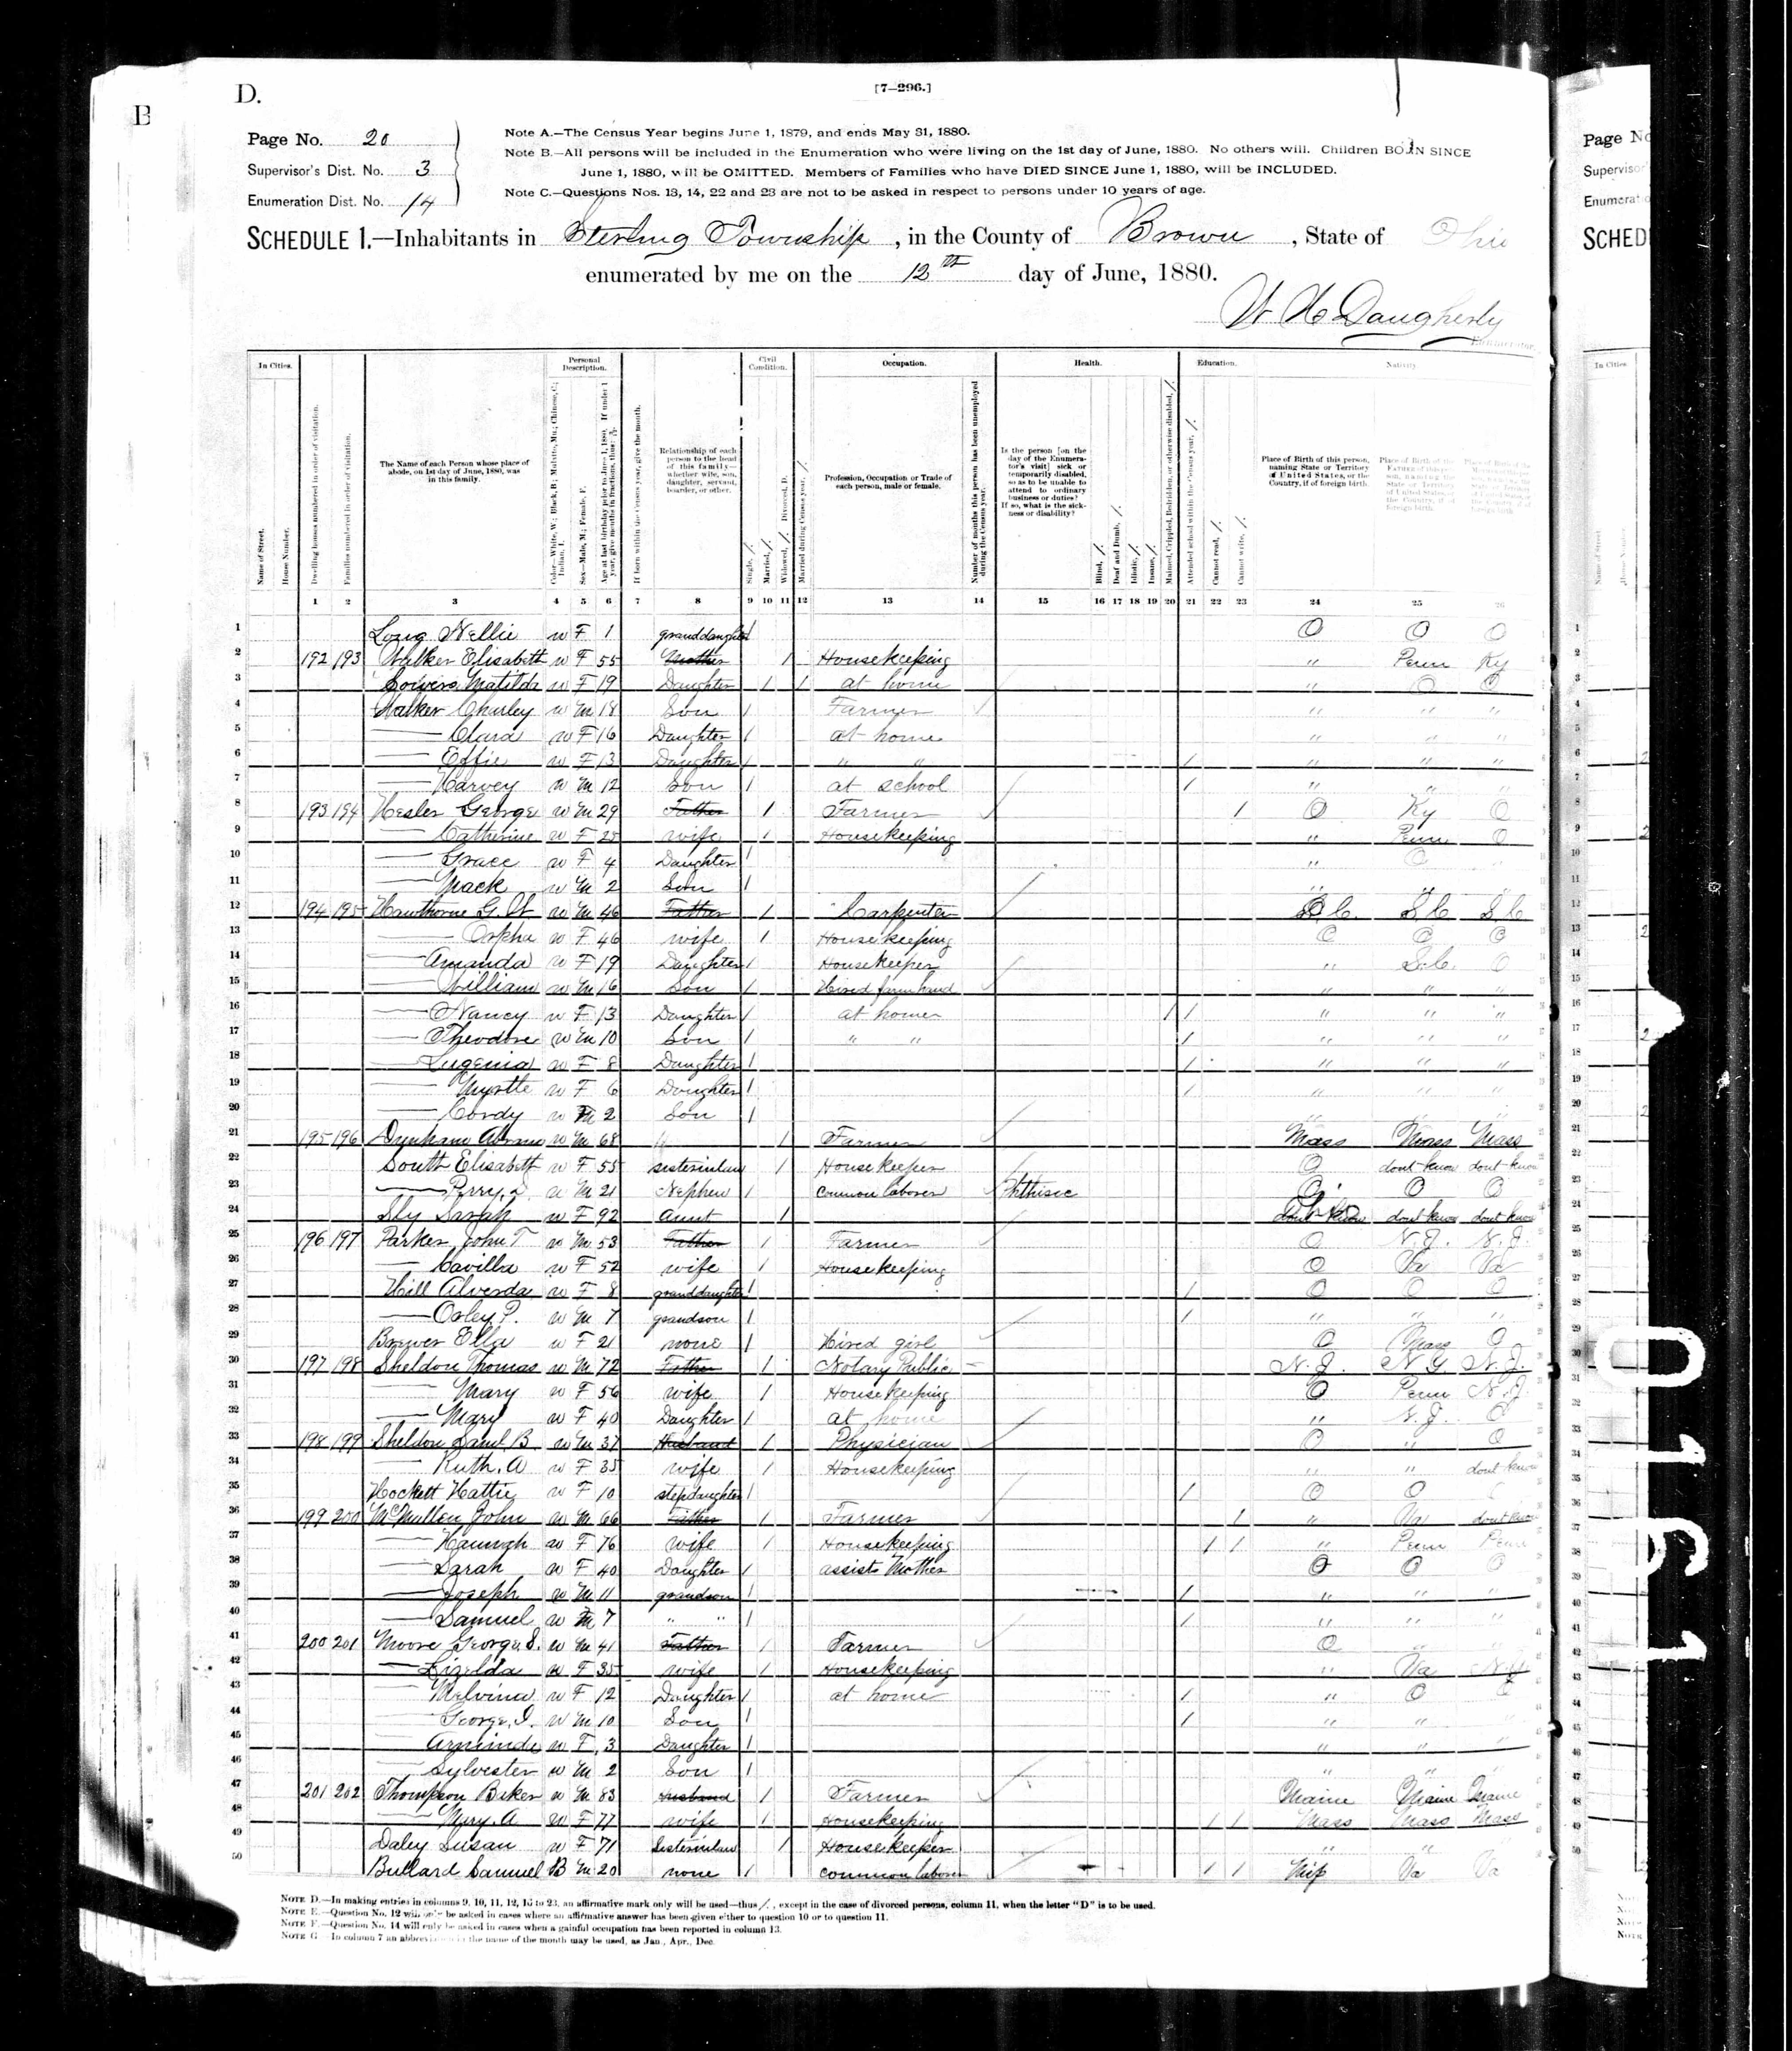 D.
[7—296.]
Page No. 20
Supervisor's Dist. No. 3
Enumeration Dist. No. 14
Note A.—The Census Year begins June 1, 1879, and ends May 31, 1880.
Note B.—All persons will be included in the Enumeration who were living on the 1st day of June, 1880. No others will. Children BORN SINCE
June 1, 1880, will be OMITTED. Members of Families who have DIED SINCE June 1, 1880, will be INCLUDED.
Note C.—Questions Nos. 13, 14, 22 and 23 are not to be asked in respect to persons under 10 years of age.
SCHEDULE 1.—Inhabitants in Sterling Township, in the County of Brown, State of Ohio
enumerated by me on the 12th day of June, 1880.
W H Daugherty
Enumerator.
In Cities. Personal Description. Civil Condition. Occupation. Health. Education. Nativity.
The Name of each Person whose place of abode, on 1st day of June, 1880, was in this family.
Relationship of each person to the head of this family—whether wife, son, daughter, servant, boarder, or other.
Profession, Occupation or Trade of each person, male or female.
Is the person [on the day of the Enumerator's visit] sick or temporarily disabled, so as to be unable to attend to ordinary business or duties? If so, what is the sickness or disability?
Place of Birth of this person, naming State or Territory of United States, or the Country, if of foreign birth.
1 2 3 4 5 6 7 8 9 10 11 12 13 14 15 16 17 18 19 20 21 22 23 24 25 26
1 Long Nellie w F 1 granddaughter / O O O
2 192 193 Walker Elisabeth w F 55 Mother / Housekeeping " Penn Ky
3 Matilda w F 19 Daughter / / at home " O O
4 Walker Charley w M 18 Son / Farmer " " "
5 — Clara w F 16 Daughter / at home " " "
6 — Effie w F 13 Daughter / " " / " " "
7 — Harvey w M 12 Son / at school / " " "
8 193 194 Hesler George w M 29 Father / Farmer / O Ky O
9 — Catherine w F 25 wife / Housekeeping " Penn O
10 — Grace w F 4 Daughter / " O "
11 — Mack w M 2 Son / " "
12 194 195 Hawthorne G. W w M 46 Father / Carpenter S.C. S C S C
13 — Orpha w F 46 wife / Housekeeping O O O
14 — Amanda w F 19 Daughter / Housekeeper " S.C. O
15 — William w M 16 Son / Hired farm hand " " "
16 — Nancy w F 13 Daughter / at home / / " " "
17 — Theodore w M 10 Son / " " / " " "
18 — Eugenia w F 8 Daughter / / " " "
19 — Myrtle w F 6 Daughter / / " " "
20 — Cordy w M 2 Son / " " "
21 195 196 Dunham Abram w M 68 / Farmer Mass Mass Mass
22 South Elisabeth w F 55 sisterinlaw / Housekeeper O dont know dont know
23 — Perry, w M 21 Nephew / Common laborer Phthisic O O O
24 Sly Sarah w F 92 Aunt / dont know dont know dont know
25 196 197 Parker John T w M 53 Father / Farmer O N.J. N.J.
26 — Cavilla w F 52 wife / Housekeeping O Va Va
27 Hill Alverda w F 8 granddaughter / / O O O
28 — Orley P. w M 7 grandson / / " " "
29 Brewer Ella w F 21 none / Hired girl O Mass O
30 197 198 Sheldon Thomas w M 72 Father / Notary Public — N.J. N.Y. N.J.
31 — Mary w F 56 wife / Housekeeping O Penn N.J.
32 — Mary w F 40 Daughter / at home " N.J. O
33 198 199 Sheldon Saml B w M 37 Husband / Physician O " O
34 — Ruth. A w F 35 wife / Housekeeping " " dont know
35 Hockett Hattie w F 10 stepdaughter / / O O
36 199 200 McMullen John w M 66 Father / Farmer / " Va dont know
37 — Hannah w F 76 wife / Housekeeping / / " Penn Penn
38 — Sarah w F 40 Daughter / assist Mother O O O
39 — Joseph w M 11 grandson / / " " "
40 — Samuel w M 7 " " / / " " "
41 200 201 Moore George S. w M 41 Father / Farmer O " "
42 — Lizelda w F 35 wife / Housekeeping " Va N.Y
43 — Melvina w F 12 Daughter / at home / " O O
44 — George, I. w M 10 Son / / " " "
45 — Arminda w F 3 Daughter / " " "
46 — Sylvester w M 2 Son / " " "
47 201 202 Thompson Baker w M 83 husband / Farmer Maine Maine Maine
48 — Mary. A w F 77 wife / Housekeeping / / Mass Mass Mass
49 Daley Susan w F 71 Sisterinlaw / Housekeeper " " "
50 Bullard Samuel B M 20 none / common laborer / / Mip Va Va
Note D.—In making entries in columns 9, 10, 11, 12, 16 to 23, an affirmative mark only will be used—thus /, except in the case of divorced persons, column 11, when the letter "D" is to be used.
Note E.—Question No. 12 will only be asked in cases where an affirmative answer has been given either to question 10 or to question 11.
Note F.—Question No. 14 will only be asked in cases when a gainful occupation has been reported in column 13.
Note G.—In column 7 an abbreviation in the name of the month may be used, as Jan., Apr., Dec.
0161